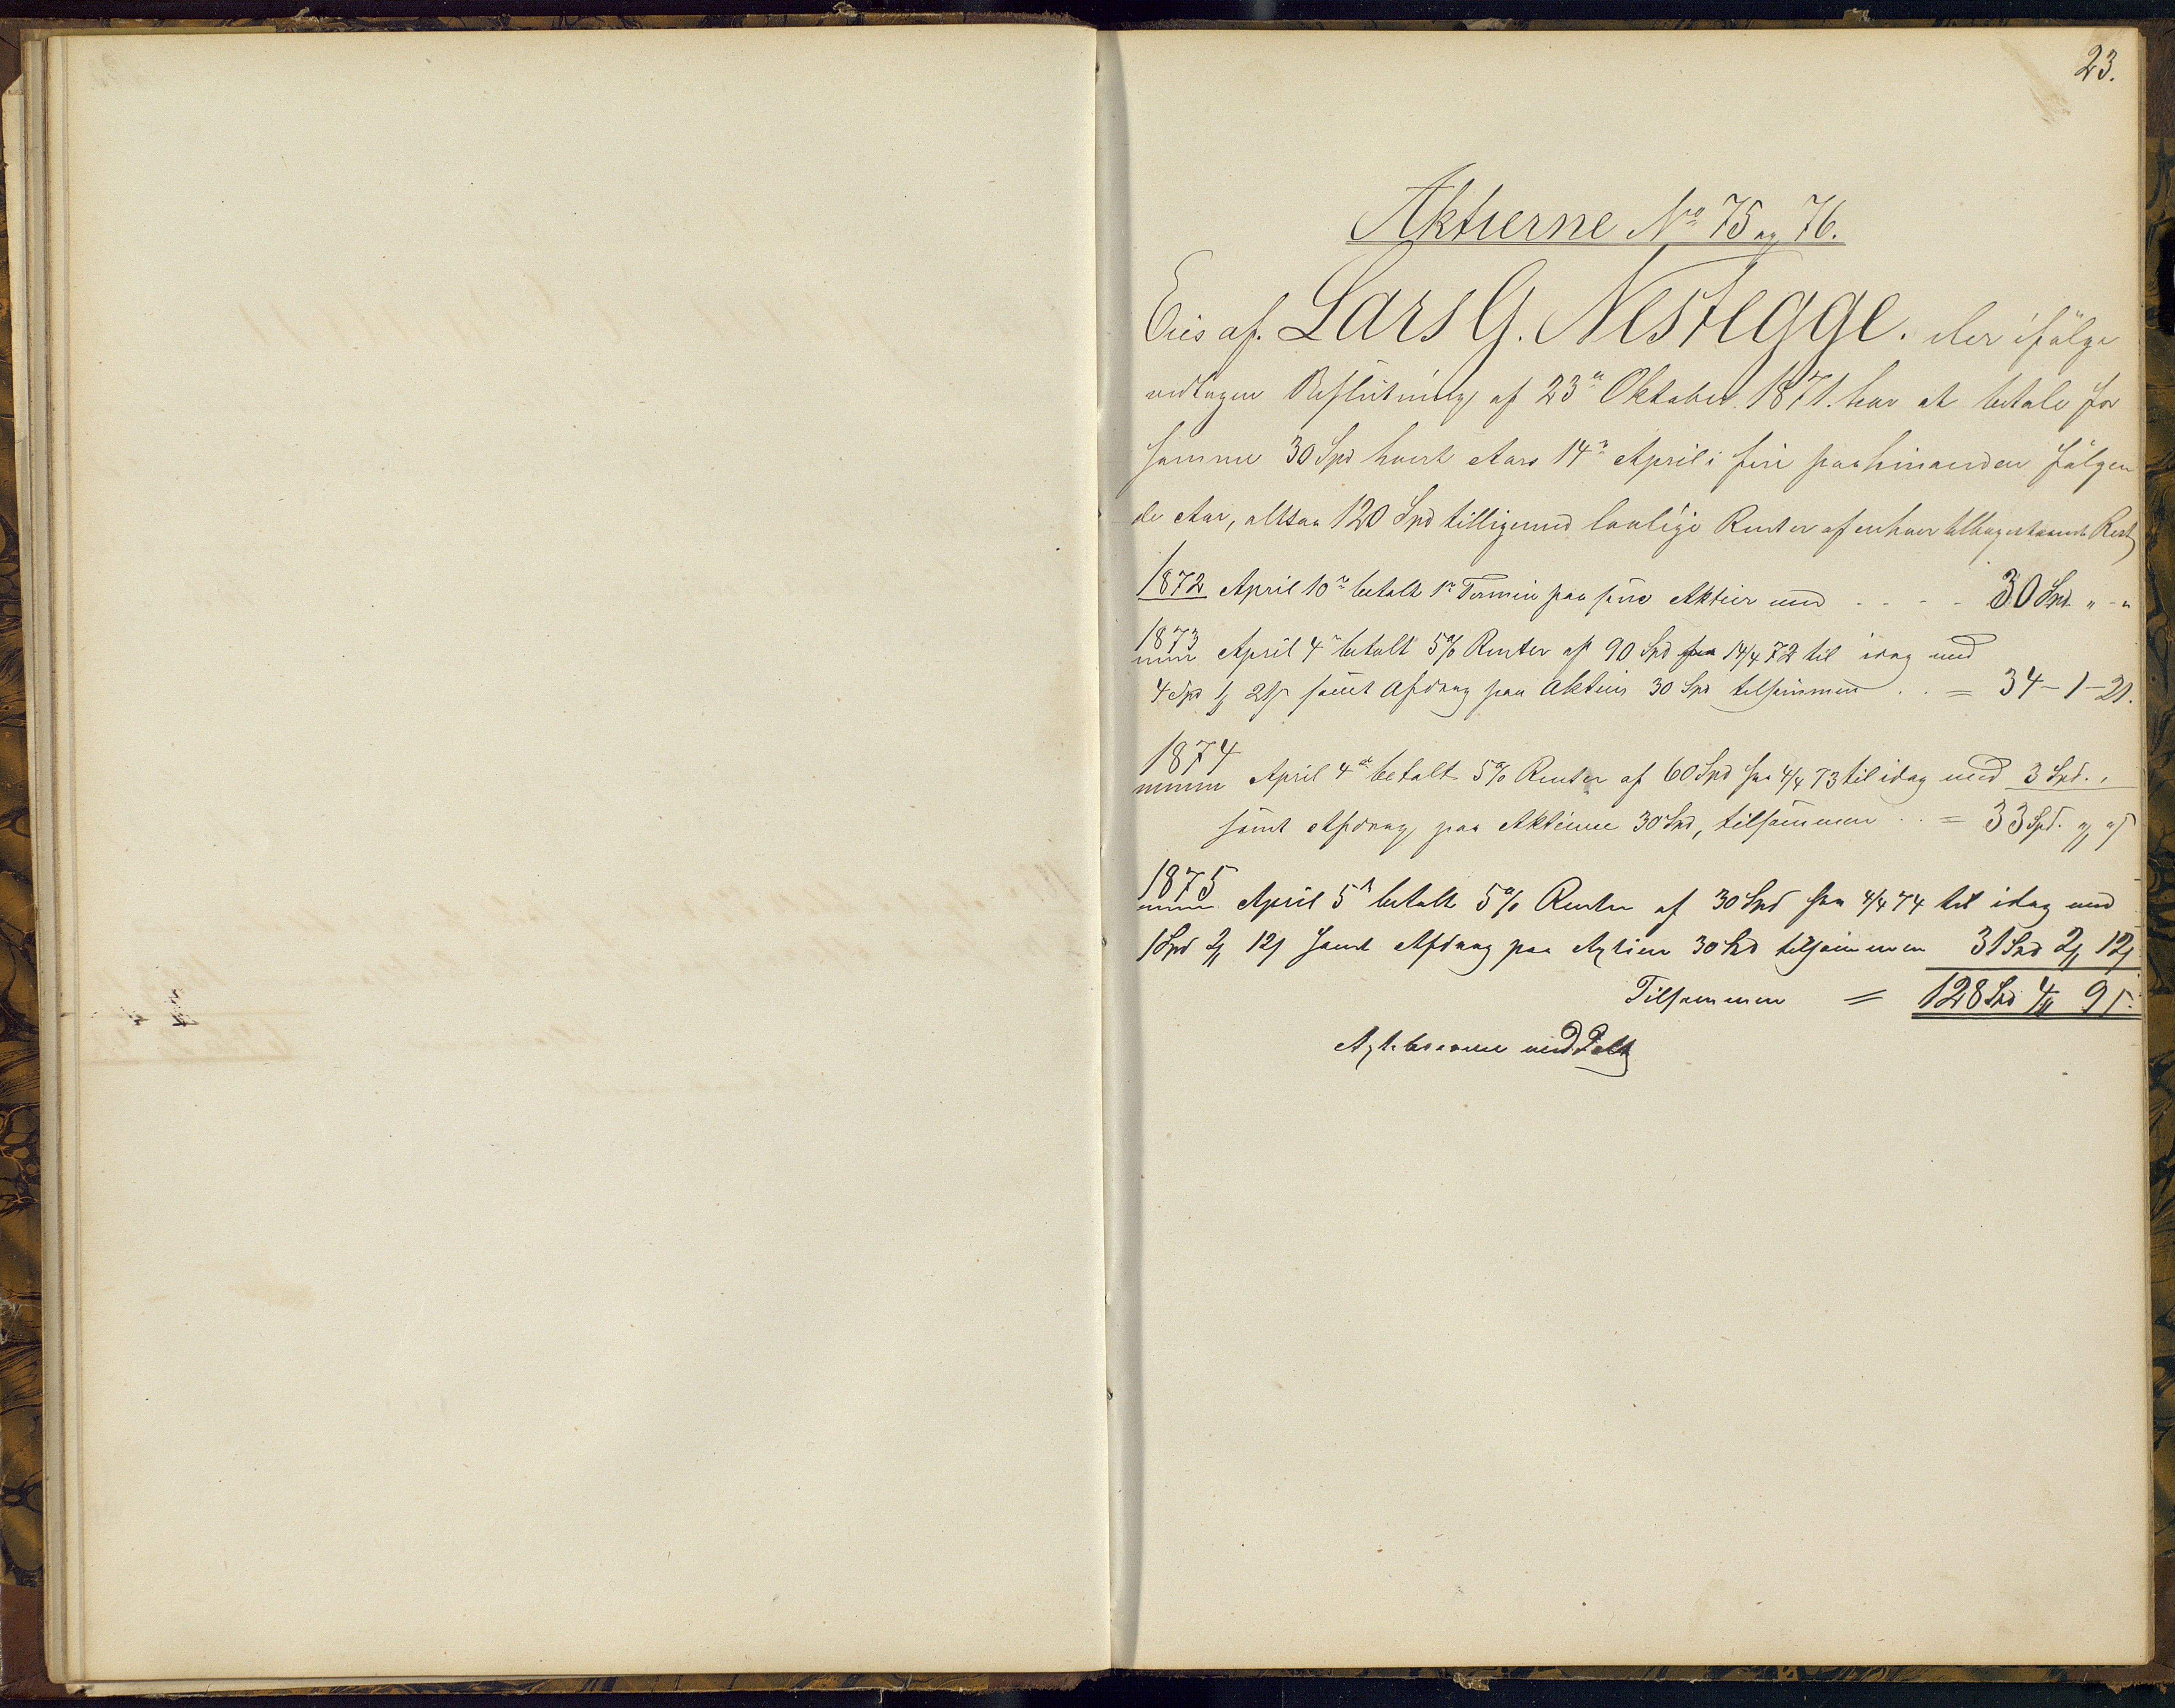 23.
Aktierne No 75 og 76.
Eies af. Lars G. Nestegge. der ifølge
vedtagen Beslutning af 23de Oktober 1871. har at betale for
samme 30 Spd hvert Aars 14de April i fire paahinanden følgen
de Aar, altsaa 120 Spd tilligemed lovlige Renter af enhver tilbagestaaende Rest
1872 April 10de betalt 1ste Termin paa sine Aktier med - - - - 30 Spd. " - "
1873 April 4de betalt 5% Renter af 90 Spd fra 14/4 72 til idag med
4 Spd 1 21 samt Afdrag paa Aktien 30 Spd tilsammen . . = 34 - 1 - 21.
1874 April 4de betalt 5% Renter af 60 Spd fra 4/4 73 til idag med 3 Spd. "
samt Afdrag paa Aktierne 30 Spd, tilsammen . . = 33 Spd. " "
1875 April 5te betalt 5% Renter af 30 Spd fra 4/4 74 til idag med
1 Spd 2 12 samt Afdrag paa Aktien 30 Spd tilsammen 31 Spd 2 12
Tilsammen = 128 Spd 4 9